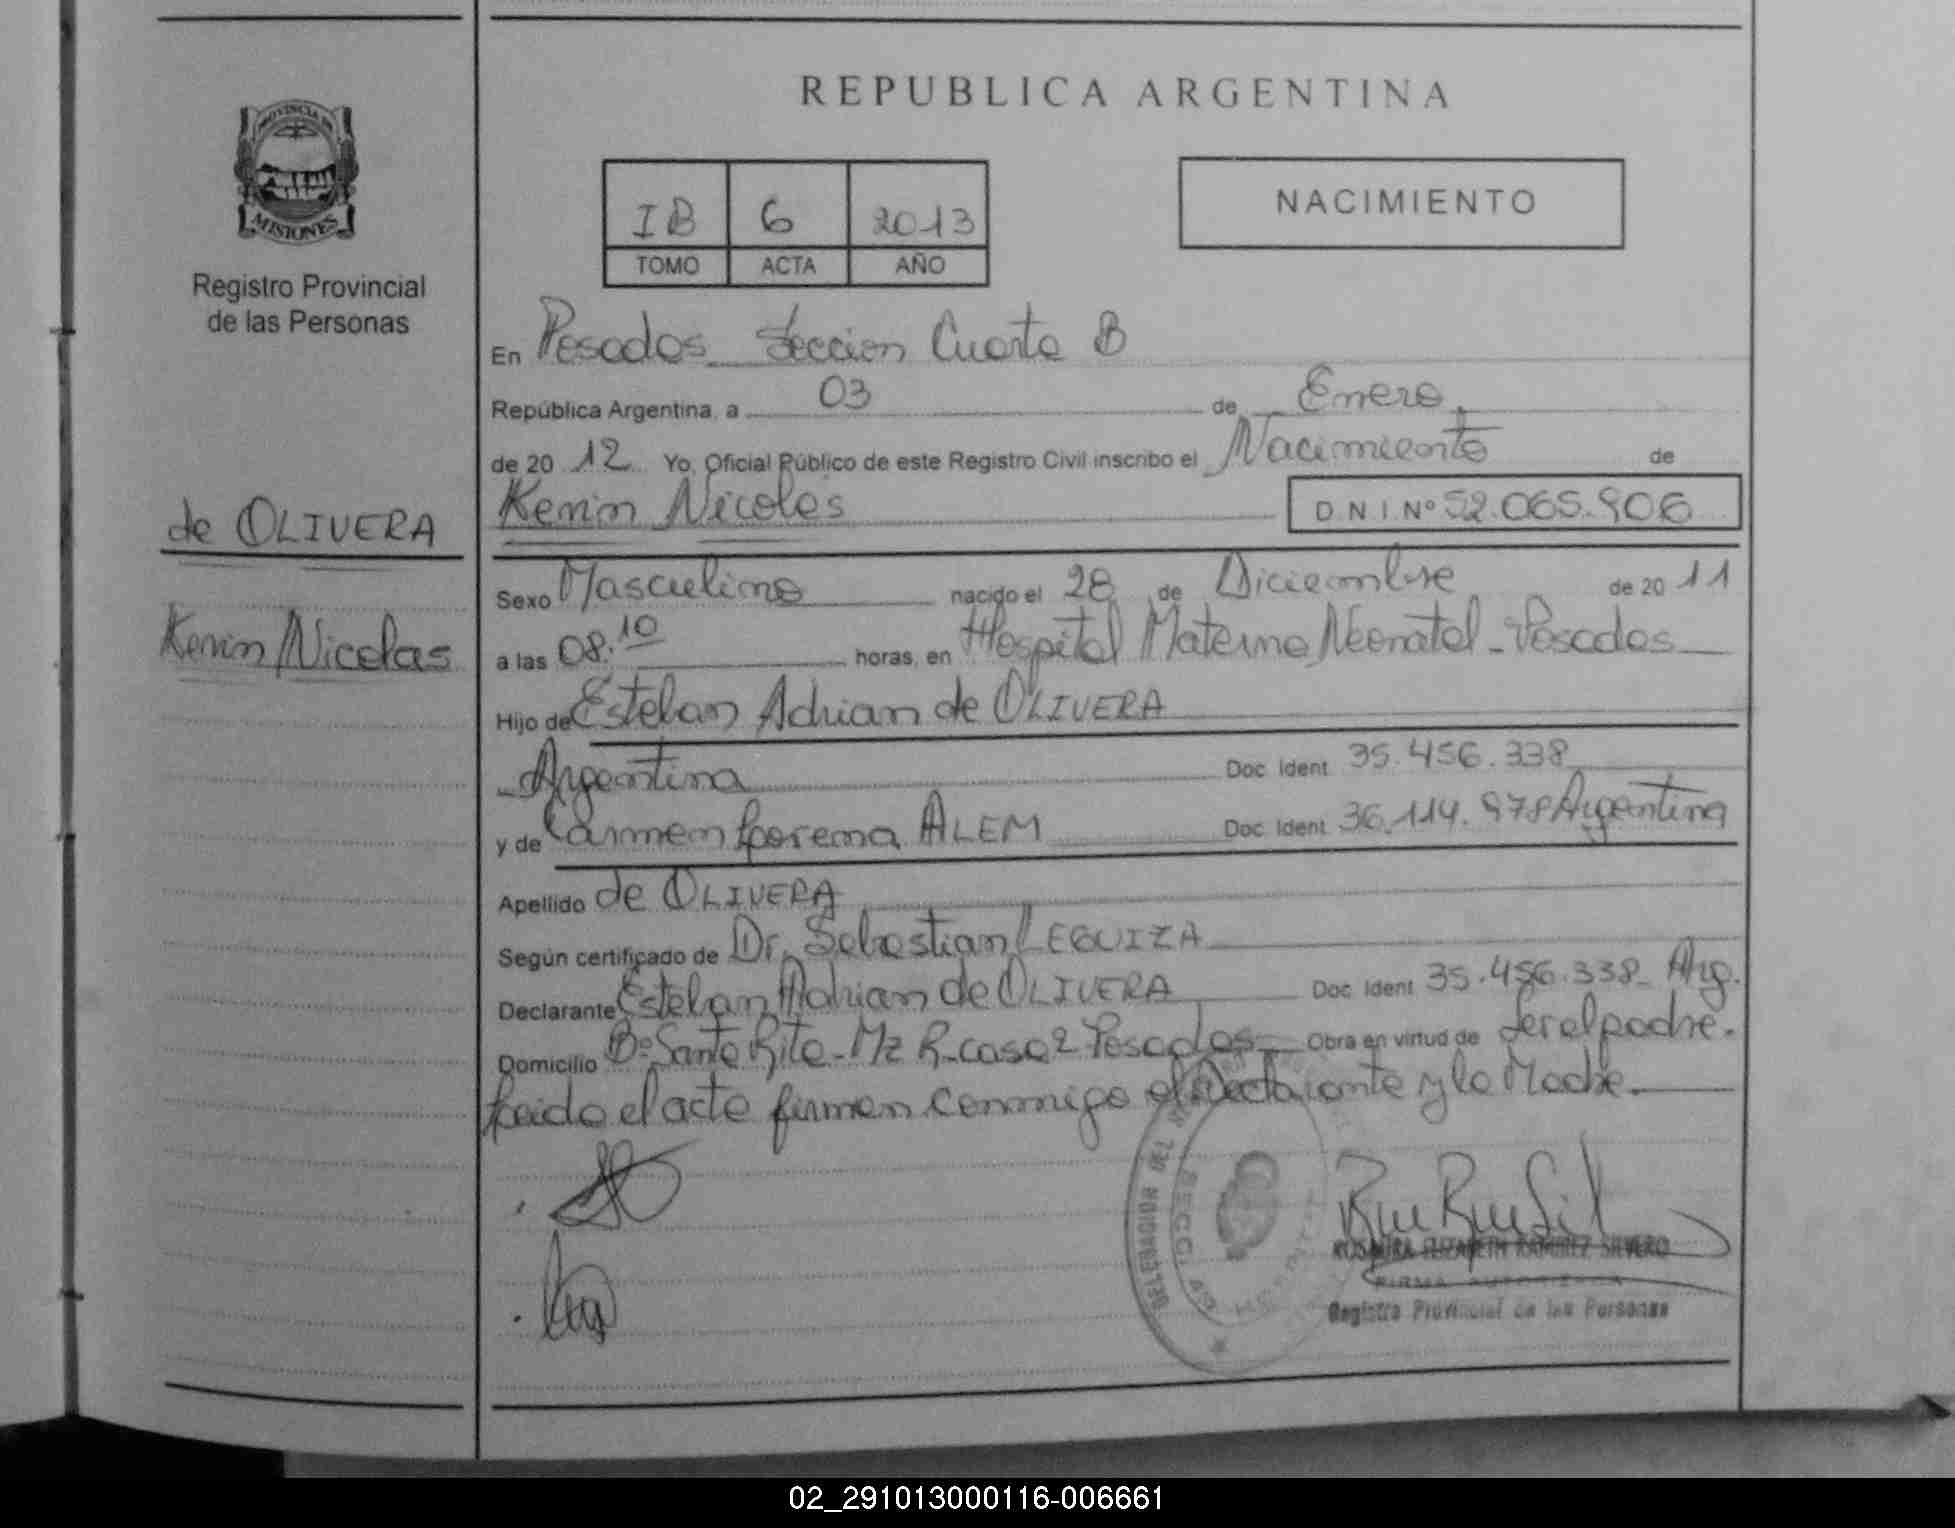 PROVINCIA DE
MISIONES
Registro Provincial
de las Personas
de OLIVERA
Kevin Nicolas
REPUBLICA ARGENTINA
IB 6 2013
TOMO ACTA AÑO
NACIMIENTO
En Posadas Seccion Cuarta B
República Argentina, a 03 de Enero
de 20 12 Yo, Oficial Público de este Registro Civil inscribo el Nacimiento de
Kevin Nicolas D.N.I. Nº 52.065.906
Sexo Masculino nacido el 28 de Diciembre de 20 11
a las 08.10 horas, en Hospital Materno Neonatal - Posadas
Hijo de Esteban Adrian de OLIVERA
Argentina Doc. Ident. 35.456.338
y de Carmen Lorena ALEM Doc. Ident. 36.114.978 Argentina
Apellido de OLIVERA
Según certificado de Dr. Sebastian LEGUIZA
Declarante Esteban Adrian de OLIVERA Doc. Ident. 35.456.338 - Arg.
Domicilio Bº Santa Rita - Mz R - casa 2 Posadas Obra en virtud de ser el padre.
Leido el acta firman conmigo el Declarante y la Madre.
DELEGACION DEL
SECCION
ROSAURA ELIZABETH RAMIREZ SILVERO
FIRMA AUTORIZADA
Registro Provincial de las Personas
02_291013000116-006661